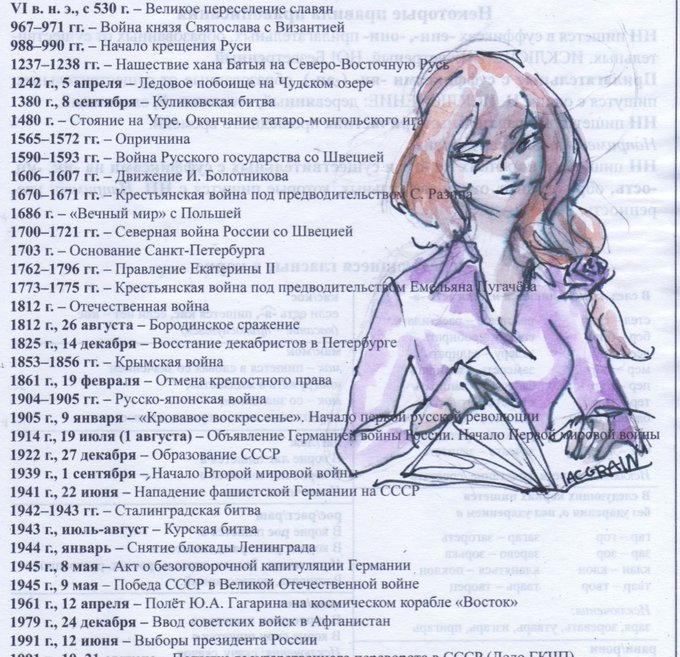 VI в. н. э., с 530 г. – Великое переселение славян
967–971 гг. – Война князя Святослава с Византией
988–990 гг. – Начало крещения Руси
1237–1238 гг. – Нашествие хана Батыя на Северо-Восточную Русь
1242 г., 5 апреля – Ледовое побоище на Чудском озере
1380 г., 8 сентября – Куликовская битва
1480 г. – Стояние на Угре. Окончание татаро-монгольского ига
1565–1572 гг. – Опричнина
1590–1593 гг. – Война Руского государства со Швецией
1606–1607 гг. – Движение И. Болотникова
1670–1671 гг. – Крестьянская война под предводительством С. Разина
1686 г. – «Вечный мир» с Польшей
1700–1721 гг. – Северная война России со Швецией
1703 г. – Основание Санкт-Петербурга
1762–1796 гг. – Правление Екатерины II
1773–1775 гг. – Крестьянская война под предводительством Емельяна Пугачёва
1812 г. – Отечественная война
1812 г., 26 августа – Бородинское сражение
1825 г., 14 декабря – Восстание декабристов в Петербурге
1853–1856 гг. – Крымская война
1861 г., 19 февраля – Отмена крепостного права
1904–1905 гг. – Русско-японская война
1905 г., 9 января – «Кровавое воскресенье». Начало первой русской революции
1914 г., 19 июля (1 августа) – Объявление Германией войны России. Начало Первой мировой войны
1922 г., 27 декабря – Образование СССР
1939 г., 1 сентября – Начало Второй мировой войны
1941 г., 22 июня – Нападение фашистской Германии на СССР
1942–1943 гг. – Сталинградская битва
1943 г., июль-август – Курская битва
1944 г., январь – Снятие блокады Ленинграда
1945 г., 8 мая – Акт о безоговорочной капитуляции Германии
1945 г., 9 мая – Победа СССР в Великой Отечественной войне
1961 г., 12 апреля – Полёт Ю.А. Гагарина на космическом корабле «Восток»
1979 г., 24 декабря – Ввод советских войск в Афганистан
1991 г., 12 июня – Выборы президента России
IACGRAIN